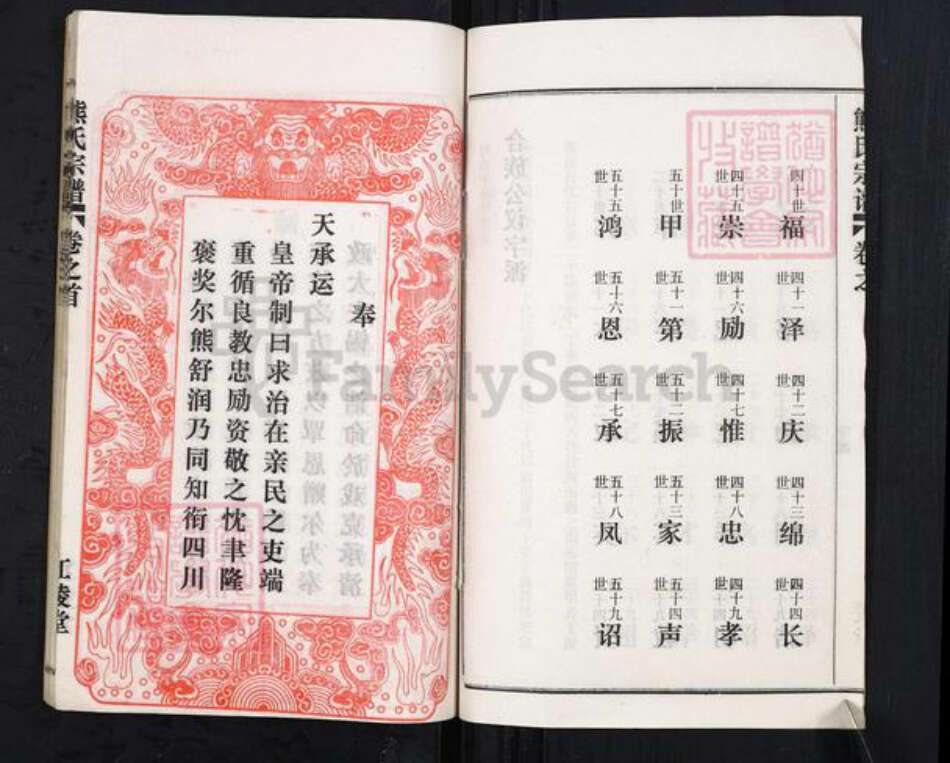 熊氏宗谱
卷之
四十世 福
四十一世 泽
四十二世 庆
四十三世 绵
四十四世 长
四十五世 崇
四十六世 励
四十七世 惟
四十八世 忠
四十九世 孝
五十世 甲
五十一世 第
五十二世 振
五十三世 家
五十四世 声
五十五世 鸿
五十六世 恩
五十七世 承
五十八世 凤
五十九世 诏
合族公议字派
奉
天承运
皇帝制曰求治在亲民之吏端
重循良教忠励资敬之忱聿隆
褒奖尔熊舒润乃同知衔四川
熊氏宗谱
卷之首
江陵堂
FamilySearch